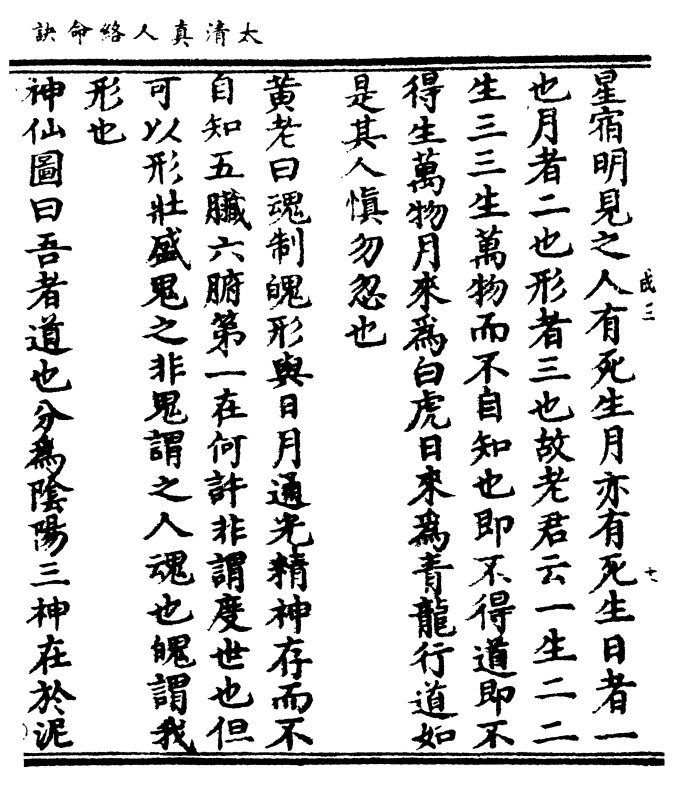 太清真人絡命訣
成三
十
星宿明見之人有死生月亦有死生日者一
也月者二也形者三也故老君云一生二二
生三三生萬物而不自知也即不得道即不
得生萬物月來爲白虎日來爲青龍行道如
是其人慎勿忽也
黃老曰魂制魄形與日月通光精神存而不
自知五臟六腑第一在何許非謂度世也但
可以形壯盛鬼之非鬼謂之人魂也魄謂我
形也
神仙圖曰吾者道也分爲陰陽三神在於泥